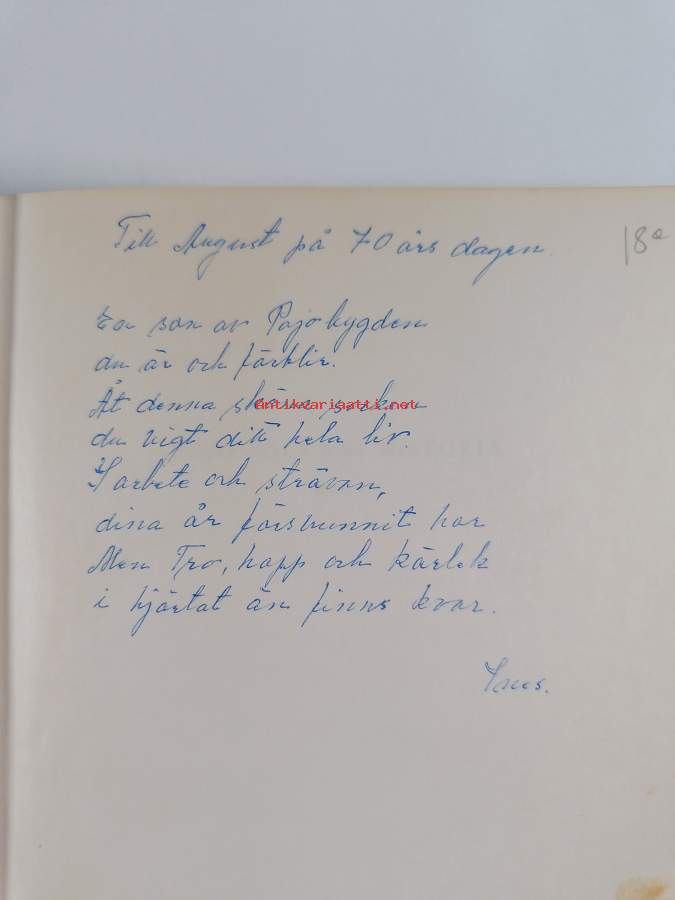 Till August på 70 års dagen.
18e
En son av Pojobygden
du är och förblir.
Åt denna sköna socken
Antikvariaatti.net
du vigt ditt hela liv.
I arbete och strävan,
dina år försvunnit har
Men Tro, hopp och kärlek
i hjärtat än finns kvar.